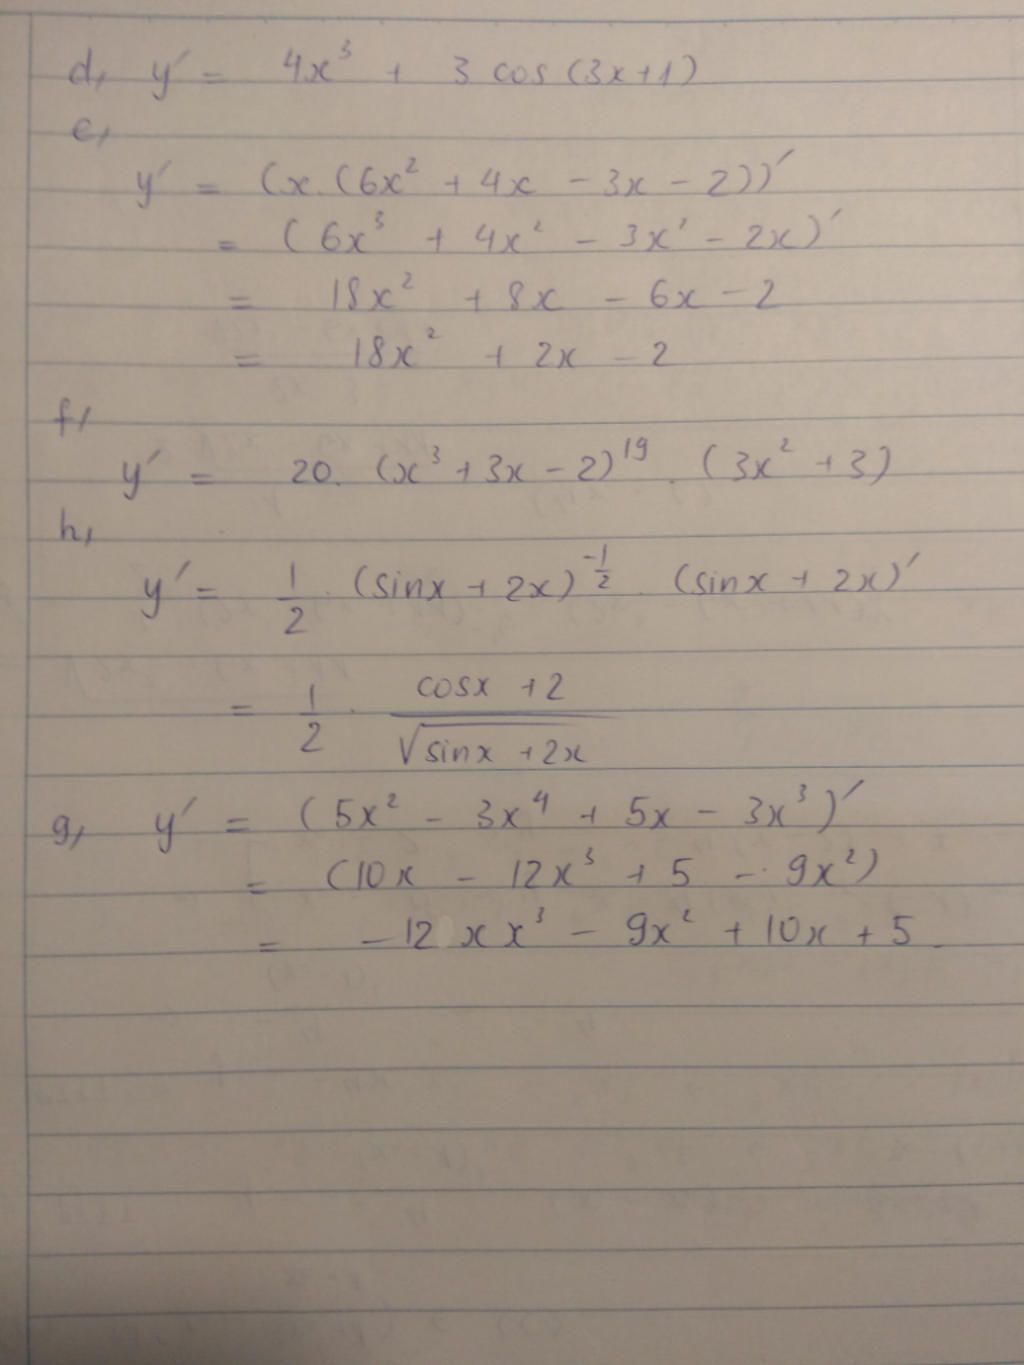 d, y' = 4x³ + 3 cos (3x+1)
e,
y' = (x.(6x² + 4x - 3x - 2))'
= (6x³ + 4x² - 3x² - 2x)'
= 18x² + 8x - 6x - 2
= 18x² + 2x - 2
f,
y' = 20. (x³ + 3x - 2)¹⁹ . (3x² + 3)
h,
y' = 1/2 . (sinx + 2x)^(-1/2) . (sinx + 2x)'
= 1/2 . (cosx + 2)/√(sinx + 2x)
g, y' = (5x² - 3x⁴ + 5x - 3x³)'
= (10x - 12x³ + 5 - 9x²)
= -12 x x³ - 9x² + 10x + 5.